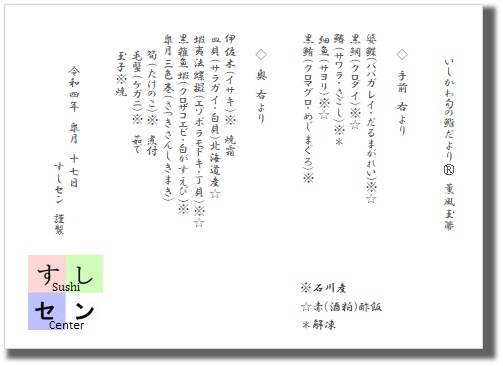 いしかわ旬の鮨だより® 薫風玉箒
◇ 手前 右より
婆鰈(ババガレイ・だるまがれい)※☆
黒鯛(クロダイ)※☆
鰆(サワラ・さごし)※＊
細魚(サヨリ)※☆
黒鮪(クロマグロ・めじまぐろ)※
◇ 奥 右より
伊佐木(イサキ)※ 焼霜
皿貝(サラガイ・白貝)北海道産☆
蝦夷法螺擬(エゾボラモドキ・丁貝)※☆
黒雑魚蝦(クロザコエビ・白がすえび)※※
皐月三色巻(さつきさんしきまき)
筍(たけのこ)※ 煮付
毛蟹(ケガニ)※ 茹で
玉子※焼
令和四年 皐月 十七日
すしセン 謹製
※石川産
☆赤(酒粕)酢飯
＊解凍
すし
Sushi
セン
Center